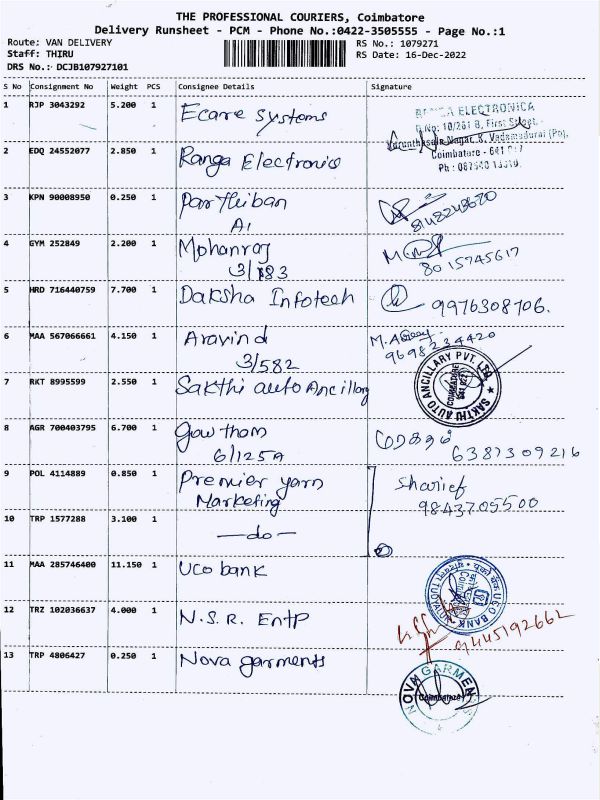 THE PROFESSIONAL COURIERS, Coimbatore
Delivery Runsheet - PCM - Phone No.:0422-3505555 - Page No.:1
Route: VAN DELIVERY RS No.: 1079271
Staff: THIRU RS Date: 16-Dec-2022
DRS No.: DCJB107927101
S No Consignment No Weight PCS Consignee Details Signature
1 RJP 3043292 5.200 1 Ecare Systems
RANGA ELECTRONICA
D.No: 10/281 B, First Street,
Nagar, K. Vadamadurai (Po),
Coimbatore - 641 017
Ph :
2 EDQ 24552077 2.850 1 Ranga Electronics
3 KPN 90008950 0.250 1 Parthiban
A1
8148243670
4 GYM 252849 2.200 1 Mohanraj
3/183
8015745617
5 HRD 716440759 7.700 1 Daksha Infotech 9976308706.
6 MAA 567066661 4.150 1 Aravind
3/582
9698234420
7 RKT 8995599 2.550 1 Sakthi auto Ancillary
SAKTHI AUTO ANCILLARY PVT. LTD
COIMBATORE
8 AGR 700403795 6.700 1 Gowtham
6/125A
6387309216
9 POL 4114889 0.850 1 Premier yarn
Marketing
Sharief
9843705500
10 TRP 1577288 3.100 1 —do—
11 MAA 285746400 11.150 1 UCO bank
UCO BANK
12 TRZ 102036637 4.000 1 N.S.R. EntP
9445192662
13 TRP 4806427 0.250 1 Nova garments
NOVA GARMENTS
Coimbatore